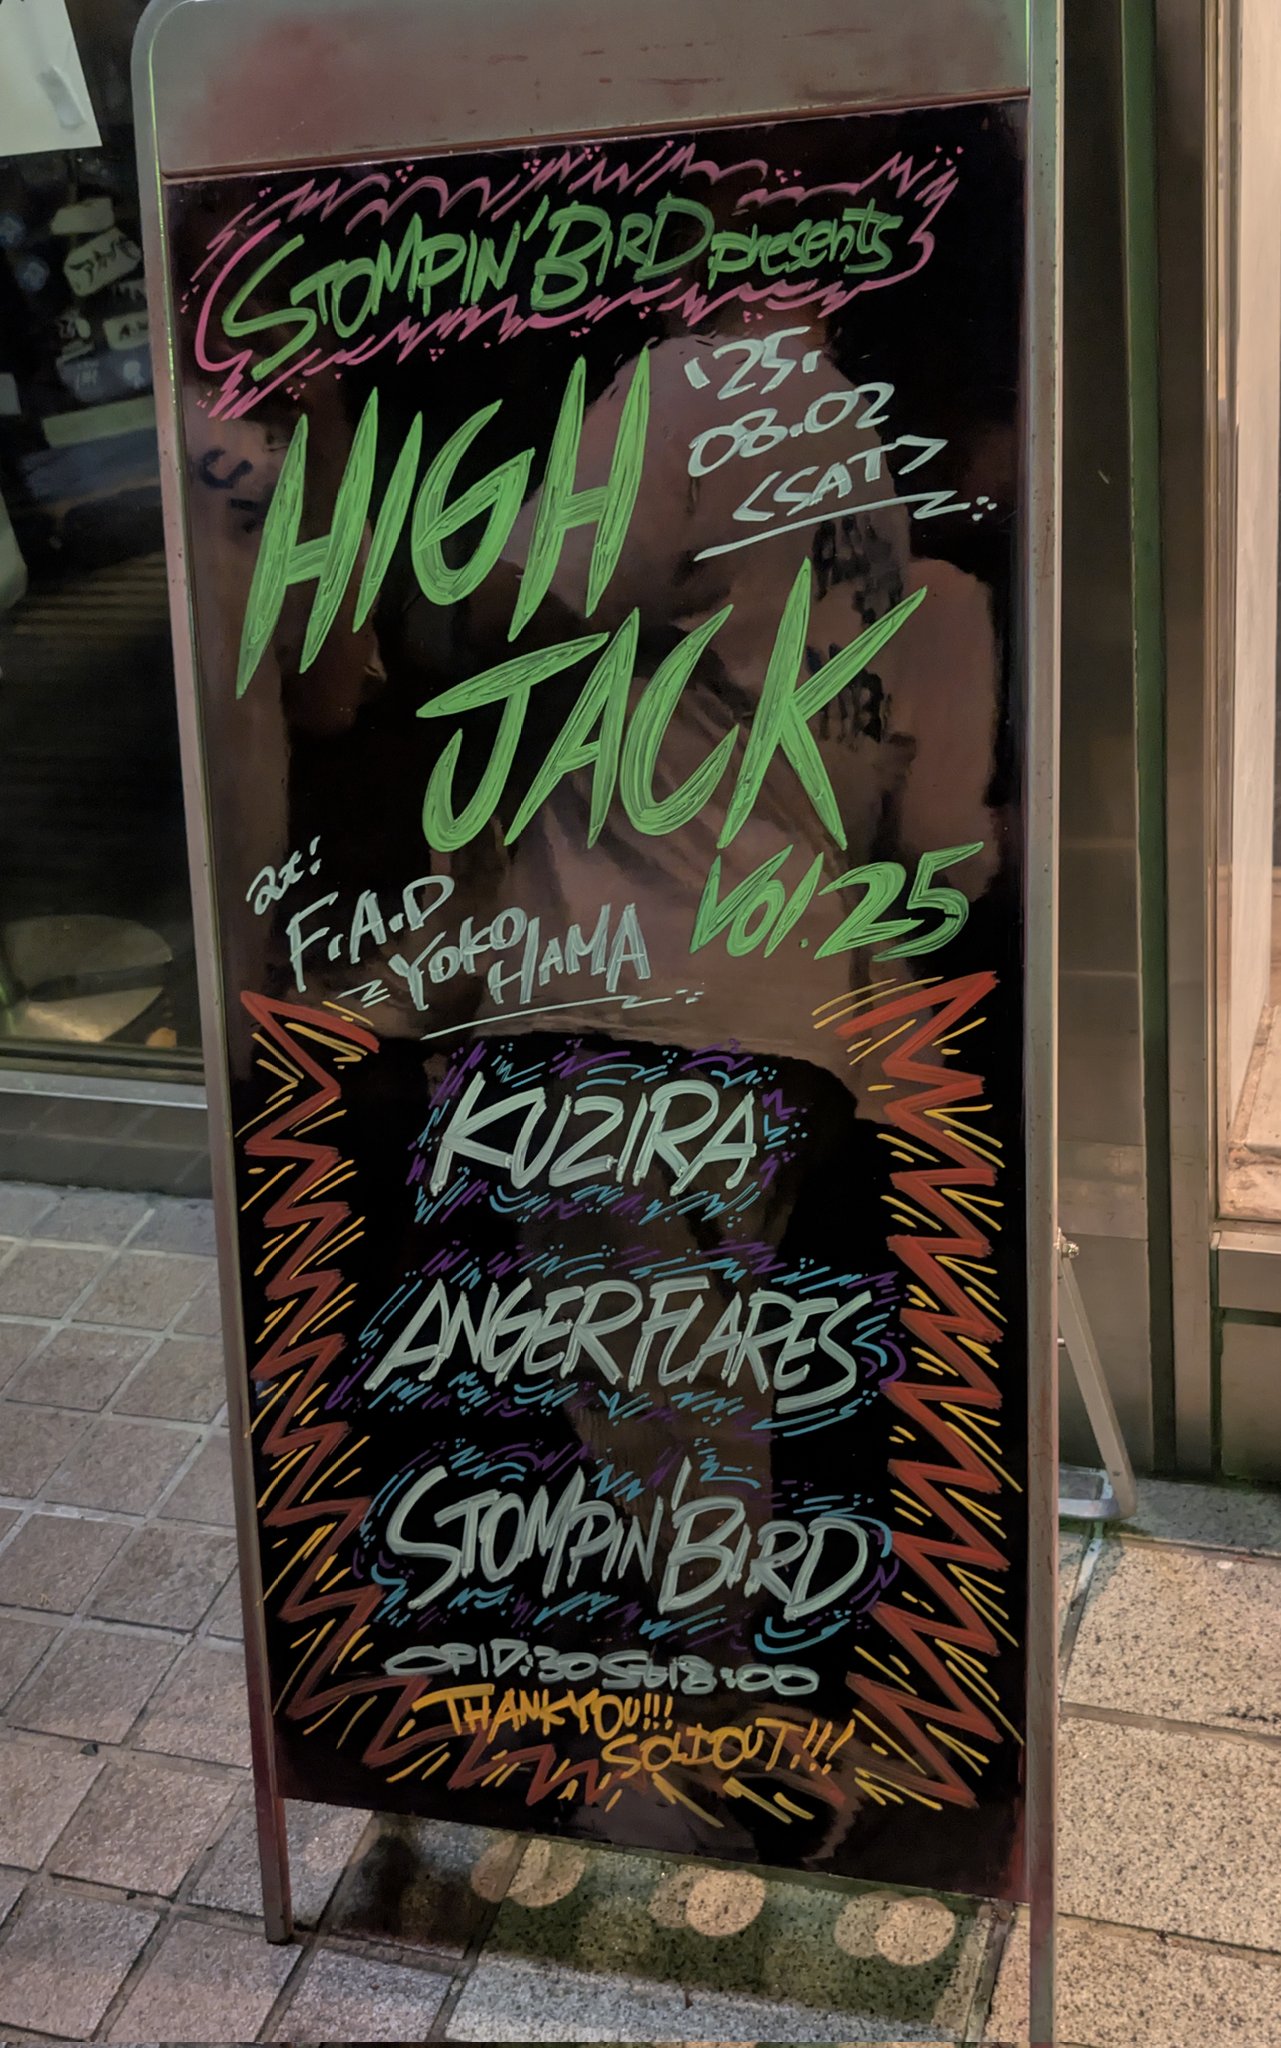 STOMPIN' BIRD presents
HIGH
JACK
'25.
08.02
<SAT>
Vol. 25
at:
F.A.D
YOKO
HAMA
KUZIRA
ANGERFLARES
STOMPIN' BIRD
OP17:30 St18:00
THANK YOU!!!
SOLDOUT!!!